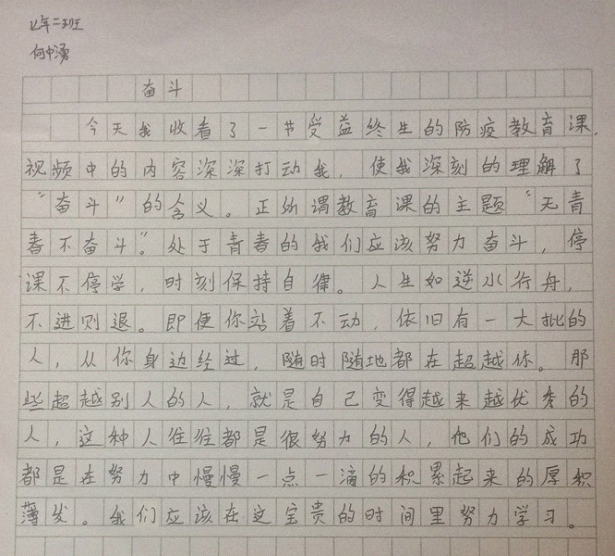 七年二班
何中湧
奋斗
今天我收看了一节受益终生的防疫教育课.
视频中的内容深深打动我，使我深刻的理解了
“奋斗”的含义。正所谓教育课的主题“无青
春不奋斗”。处于青春的我们应该努力奋斗，停
课不停学，时刻保持自律。人生如逆水行舟，
不进则退。即便你站着不动，依旧有一大批的
人，从你身边经过，随时随地都在超越你。那
些超越别人的人，就是自己变得越来越优秀的
人，这种人往往都是很努力的人，他们的成功
都是在努力中慢慢一点一滴的积累起来的厚积
薄发。我们应该在这宝贵的时间里努力学习。